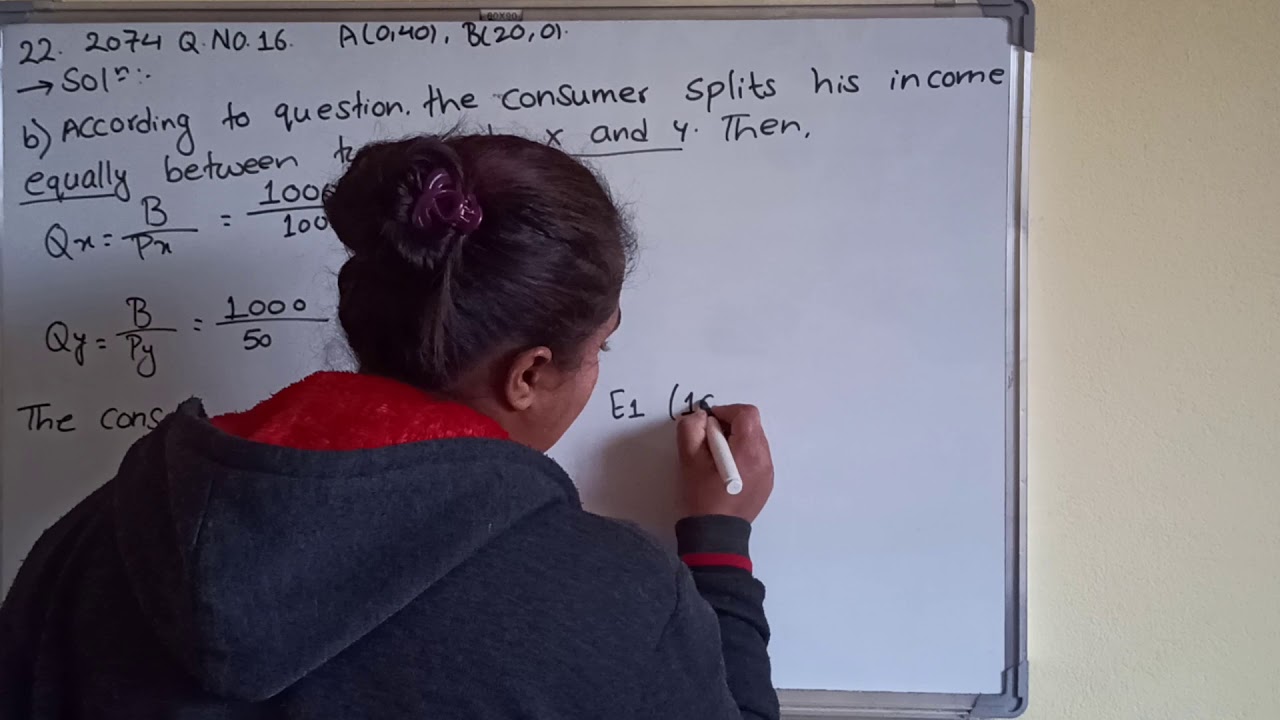 22. 2074 Q.NO.16. A(0,40), B(20,0).
→ Solⁿ:-
b) According to question. the consumer splits his income
equally between x and y. Then,
Qx = B/Px = 1000/100
Qy = B/Py = 1000/50
The E1 (10